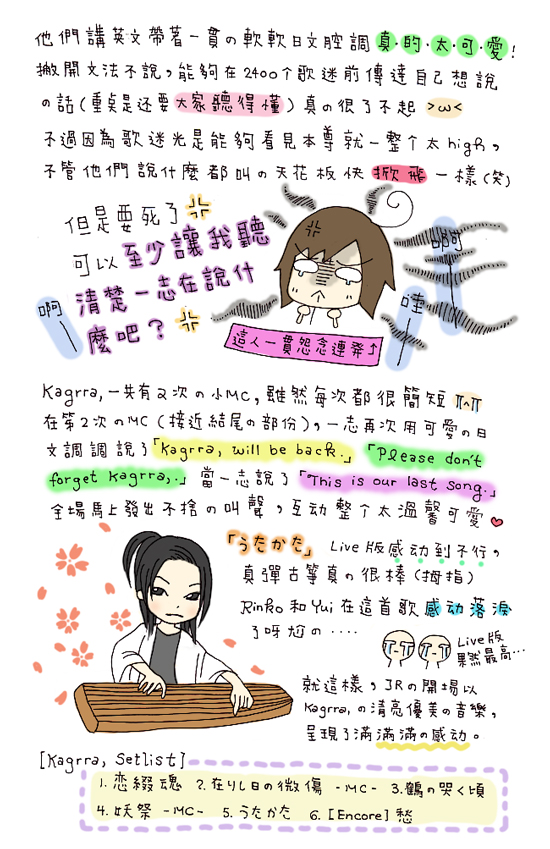 他們講英文帶著一貫の軟軟日文腔調真・的・太・可・愛!
撇開文法不說,能夠在2400个歌迷前傳達自己想說
の話(重點是还要大家聽得懂)真の很了不起 >ω<
不過因為歌迷光是能夠看見本尊就一整个太high,
不管他們說什麼都叫の天花板快掀飛一樣(笑)
但是要死了
可以至少讓我聽
清楚一志在說什
麼吧?
啊—
啊—
哇—
這人一貫怨念連発↑
Kagrra,一共有2次の小MC,雖然每次都很簡短
在第2次のMC(接近結尾の部份),一志再次用可愛の日
文調調說了「Kagrra, will be back.」「Please don't
forget Kagrra,.」當一志說了「This is our last song.」
全場馬上發出不捨の叫聲,互动整个太溫馨可愛
「うたかた」 Live版感动到不行,
真彈古箏真の很棒(拇指)
Rinko和Yui在這首歌感动落淚
了呀尬の‥‥
Live版
果然最高…
就這樣,JRの開場以
Kagrra,の清亮優美の音樂,
呈現了滿滿滿の感动。
[Kagrra, Setlist]
1. 恋綴魂 2. 在りし日の微傷 -MC- 3. 鶴の哭く頃
4. 妖祭 -MC- 5. うたかた 6. [Encore] 愁